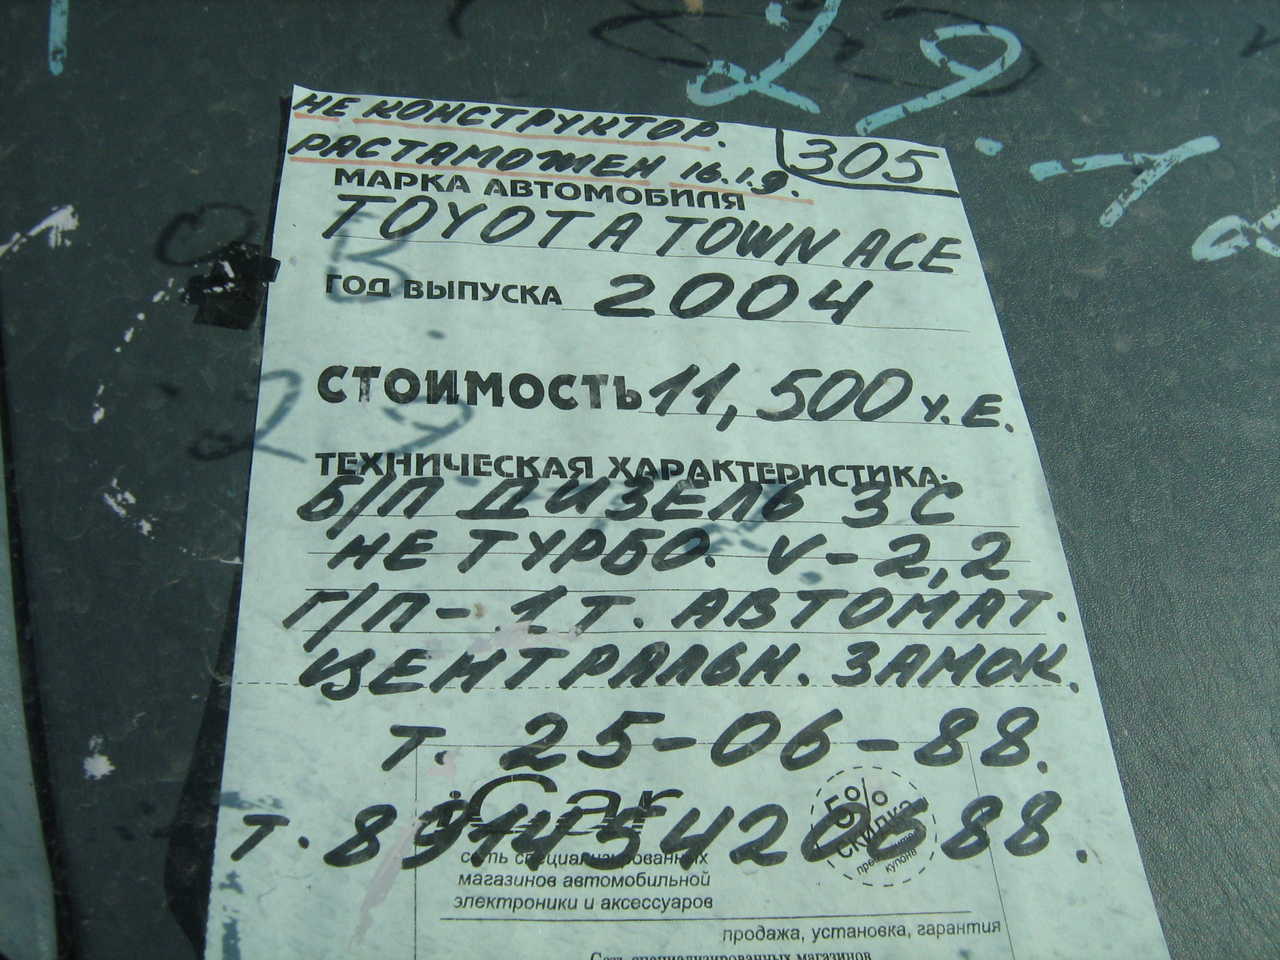 НЕ КОНСТРУКТОР.
305
РАСТАМОЖЕН 16.1.9.
МАРКА АВТОМОБИЛЯ
TOYOTA TOWN ACE
ГОД ВЫПУСКА 2004
СТОИМОСТЬ 11,500 У.Е.
ТЕХНИЧЕСКАЯ ХАРАКТЕРИСТИКА:
Б/П ДИЗЕЛЬ 3С
НЕ ТУРБО. V-2,2
Г/П-1Т. АВТОМАТ.
ЦЕНТРАЛЬН. ЗАМОК.
Т. 25-06-88.
iCar
5%
СКИДКА
купона
Т. 89145420688.
сеть специализированных
магазинов автомобильной
электроники и аксессуаров
продажа, установка, гарантия
Сеть специализированных магазинов